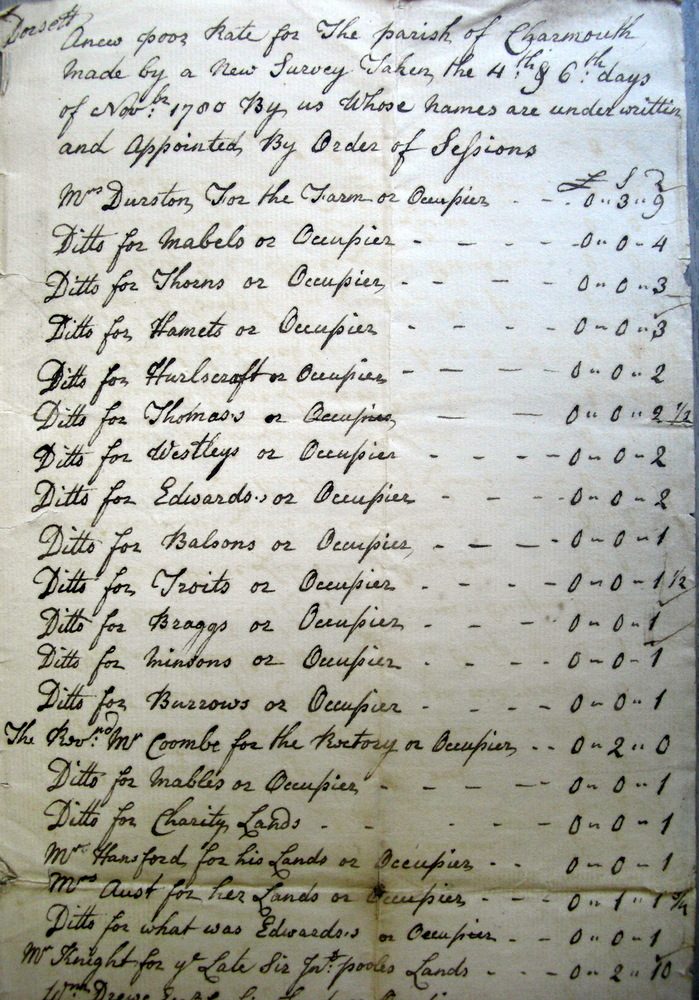 Dorsett
Anew poor Rate for The parish of Charmouth
Made by a New Survey Taken the 4th & 6th days
of Novbr: 1780 By us Whose names are underwritten
and Appointed By Order of Sessions
£ S D
Mrs Durston, For the Farm or Occupier - - - 0 " 3 " 9
Ditto for Mabels or Occupier - - - - 0 " 0 - 4
Ditto for Thorns or Occupier - - - - 0 " 0 " 3
Ditto for Hamets or Occupier - - - - 0 " 0 " 3
Ditto for Hurlscroft or Occupier - - - - 0 " 0 " 2
Ditto for Thomas's or Occupier - - - 0 " 0 " 2 1/2
Ditto for Westleys or Occupier - - - - 0 " 0 " 2
Ditto for Edwards's or Occupier - - - - 0 " 0 " 2
Ditto for Balsons or Occupier - - - - 0 " 0 " 1
Ditto for Troits or Occupier - - - - 0 " 0 - 1 1/2
Ditto for Braggs or Occupier - - - - 0 " 0 " 1
Ditto for Minsons or Occupier - - - - 0 " 0 - 1
Ditto for Burrows or Occupier - - - - 0 " 0 " 1
The Revnd: Mr Coombe for the Rectory or Occupier - - 0 " 2 " 0
Ditto for Mables or Occupier - - - - - 0 " 0 " 1
Ditto for Charity Lands - - - - - - 0 " 0 " 1
Mr Hansford for his Lands or Occupier - - 0 " 0 " 1
Mrs Aust for her Lands or Occupier - - - 0 " 1 " 1
Ditto for what was Edwards's or Occupier - - - 0 " 0 " 1
Mr Knight for ye Late Sir Jno. pooles Lands - - - 0 " 2 " 10
Wm Drewe